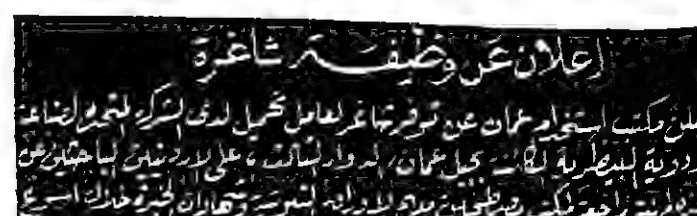 إعلان عن وظيفة شاغرة
يعلن مكتب استخدام عمان عن توفر شاغر لعامل تحميل لدى الشركة المتحدة لصناعة
الأدوية البيطرية الكائنة بجبل عمان، الدوار الثالث، على الأردنيين الباحثين عن
مراجعة المكتب مصطحبين معهم الأوراق الثبوتية وشهادات الخبرة خلال أسبوع